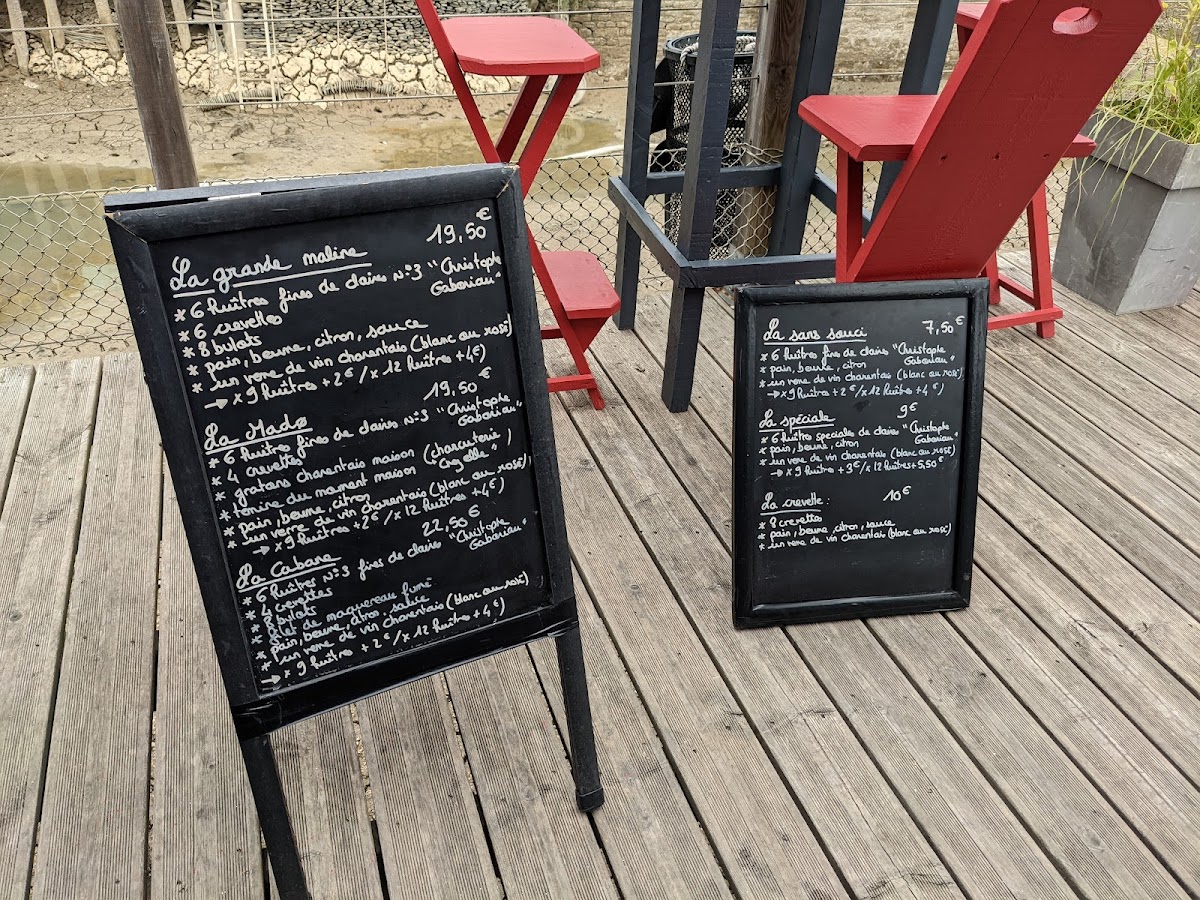 19,50 €
La grande maline
* 6 huîtres fines de claires N°3 "Christophe
Gaboriau"
* 6 crevettes
* 8 bulots
* pain, beurre, citron, sauce
* un verre de vin charentais (blanc au rosé)
→ x 9 huîtres + 2€ / x 12 huîtres + 4€)
19,50 €
La Mado
* 6 huîtres fines de claires N°3 "Christophe
Gaboriau"
* 4 crevettes
* gratons charentais maison (charcuterie
* terrine du moment maison
* pain, beurre, citron
* un verre de vin charentais (blanc au rosé)
→ x 9 huîtres + 2€ / x 12 huîtres + 4€)
22,50 €
La Cabane
* 6 huîtres N°3 fines de claires "Christophe
Gaboriau"
* 4 crevettes
* 8 bulots
* filet de maquereau fumé
* pain, beurre, citron, sauce
* un verre de vin charentais (blanc au rosé)
→ x 9 huîtres + 2€ / x 12 huîtres + 4€)
La sans souci 7,50 €
* 6 huîtres fines de claires "Christophe
Gaboriau"
* pain, beurre, citron
* un verre de vin charentais (blanc au rosé)
→ x 9 huîtres + 2€ / x 12 huîtres + 4€)
La spéciale 9€
* 6 huîtres speciales de claires "Christophe
Gaboriau"
* pain, beurre, citron
* un verre de vin charentais (blanc au rosé)
→ x 9 huîtres + 3€ / x 12 huîtres + 5,50€
La crevette : 10€
* 8 crevettes
* pain, beurre, citron, sauce
* un verre de vin charentais (blanc au rosé)